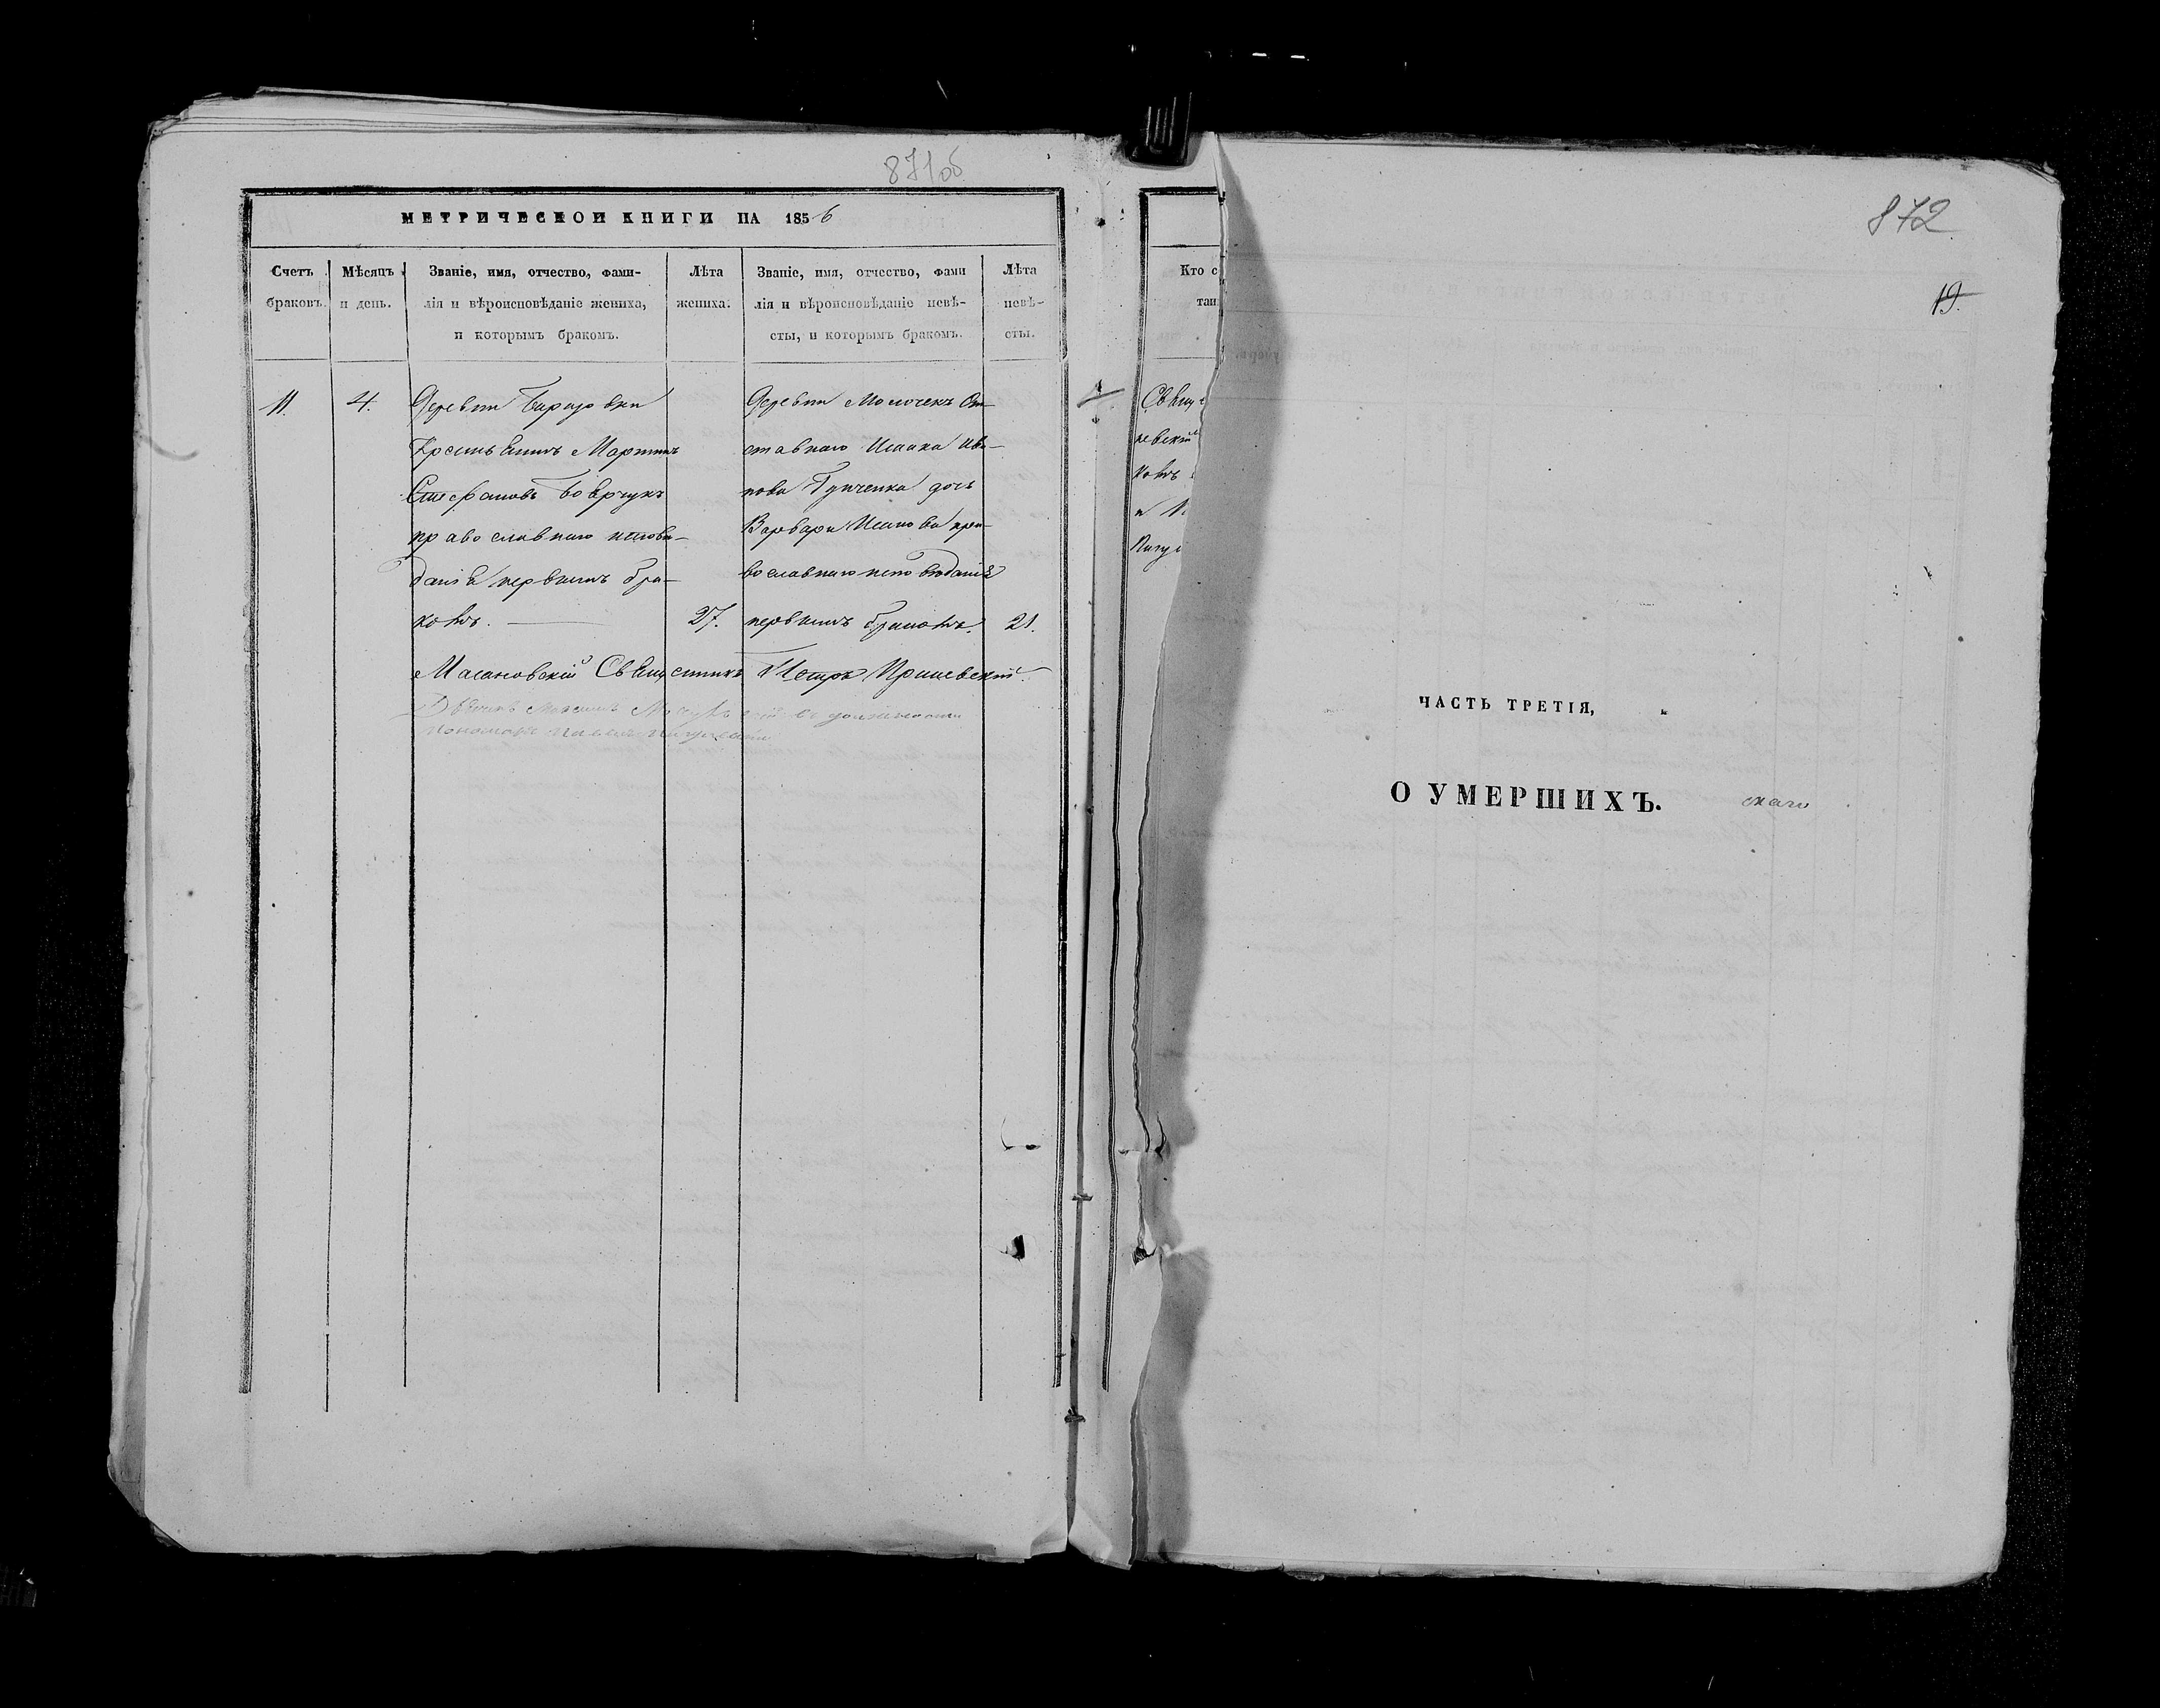 871об
МЕТРИЧЕСКОИ КНИГИ НА 1856
Счетъ браковъ.
Мѣсяцъ и день.
Званіе, имя, отчество, фами-
лія и вѣроисповѣданіе жениха,
и которымъ бракомъ.
Лѣта
жениха.
Званіе, имя, отчество, фами
лія и вѣроисповѣданіе невѣ-
сты, и которымъ бракомъ.
Лѣта
невѣ-
сты.
11.
4.
Деревни
Крестьянинъ Мартинъ
Стефановъ
православнаго исповѣ-
данія первымъ бра-
комъ.
27.
Деревни Молочекъ От-
ставнаго Исаака Ива-
нова дочь
Варвара Исакова пра-
вославнаго исповѣданія
первымъ бракомъ.
21.
Священникъ Петръ
Дьячекъ
872
19.
Кто с
таи
Свящ
невскій
комъ
и
ЧАСТЬ ТРЕТІЯ,
О УМЕРШИХЪ.
скаго